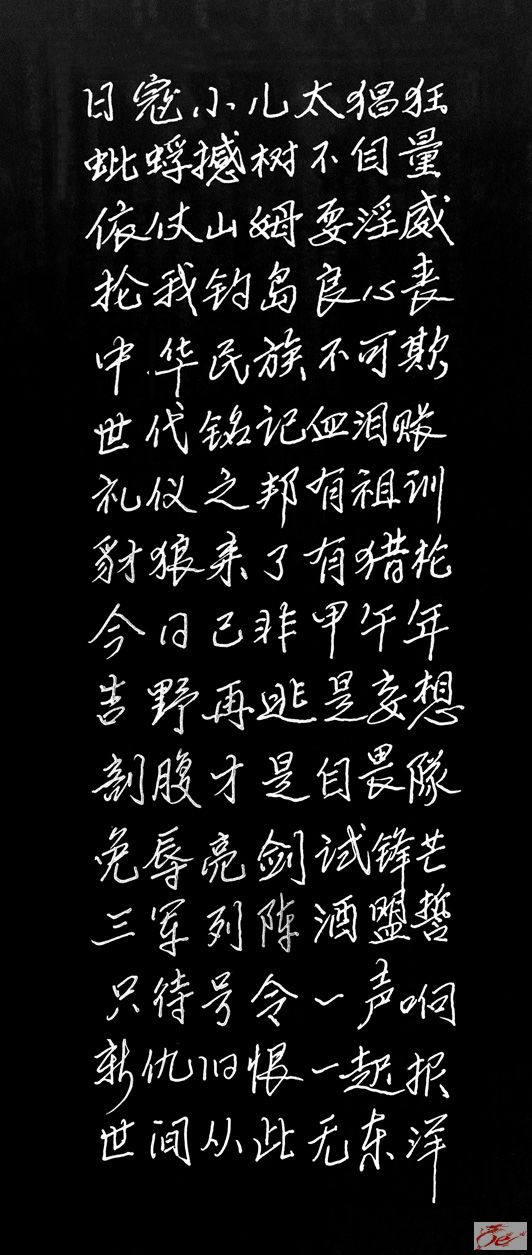 日寇小儿太猖狂
蚍蜉撼树不自量
依仗山姆耍淫威
抢我钓岛良心丧
中华民族不可欺
世代铭记血泪账
礼仪之邦有祖训
豺狼来了有猎枪
今日已非甲午年
吉野再逃是妄想
剖腹才是自畏隊
免辱亮剑试锋芒
三军列阵酒盟誓
只待号令一声响
新仇旧恨一起报
世间从此无东洋